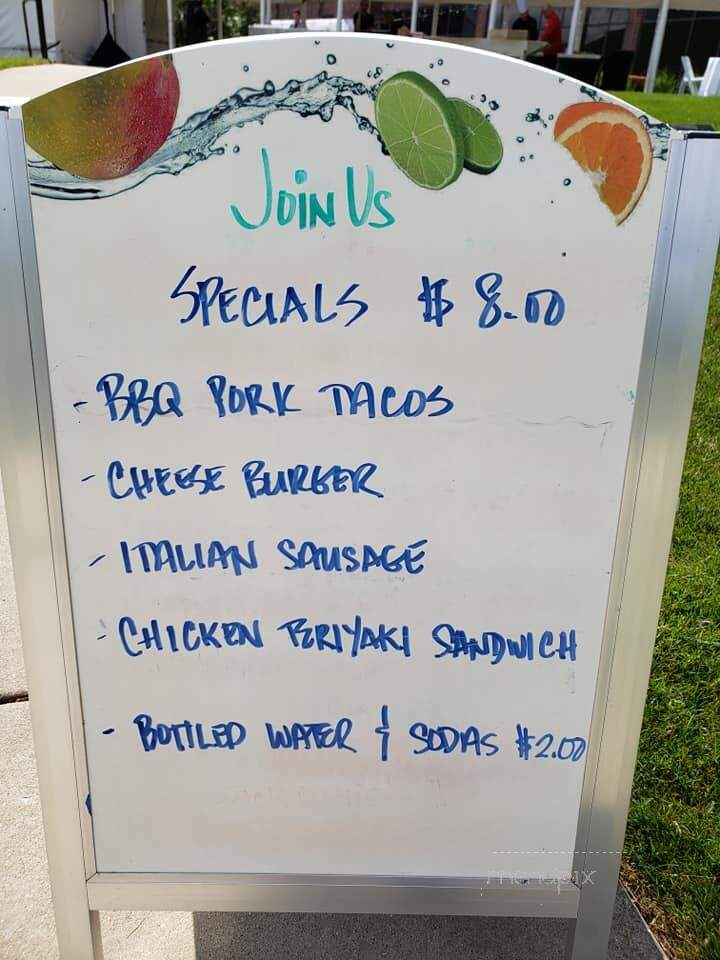 Join Us
SPECIALS $ 8.00
- BBQ PORK TACOS
- CHEESE BURGER
- ITALIAN SAUSAGE
- CHICKEN TERIYAKI SANDWICH
- BOTTLED WATER & SODAS $2.00
menupix